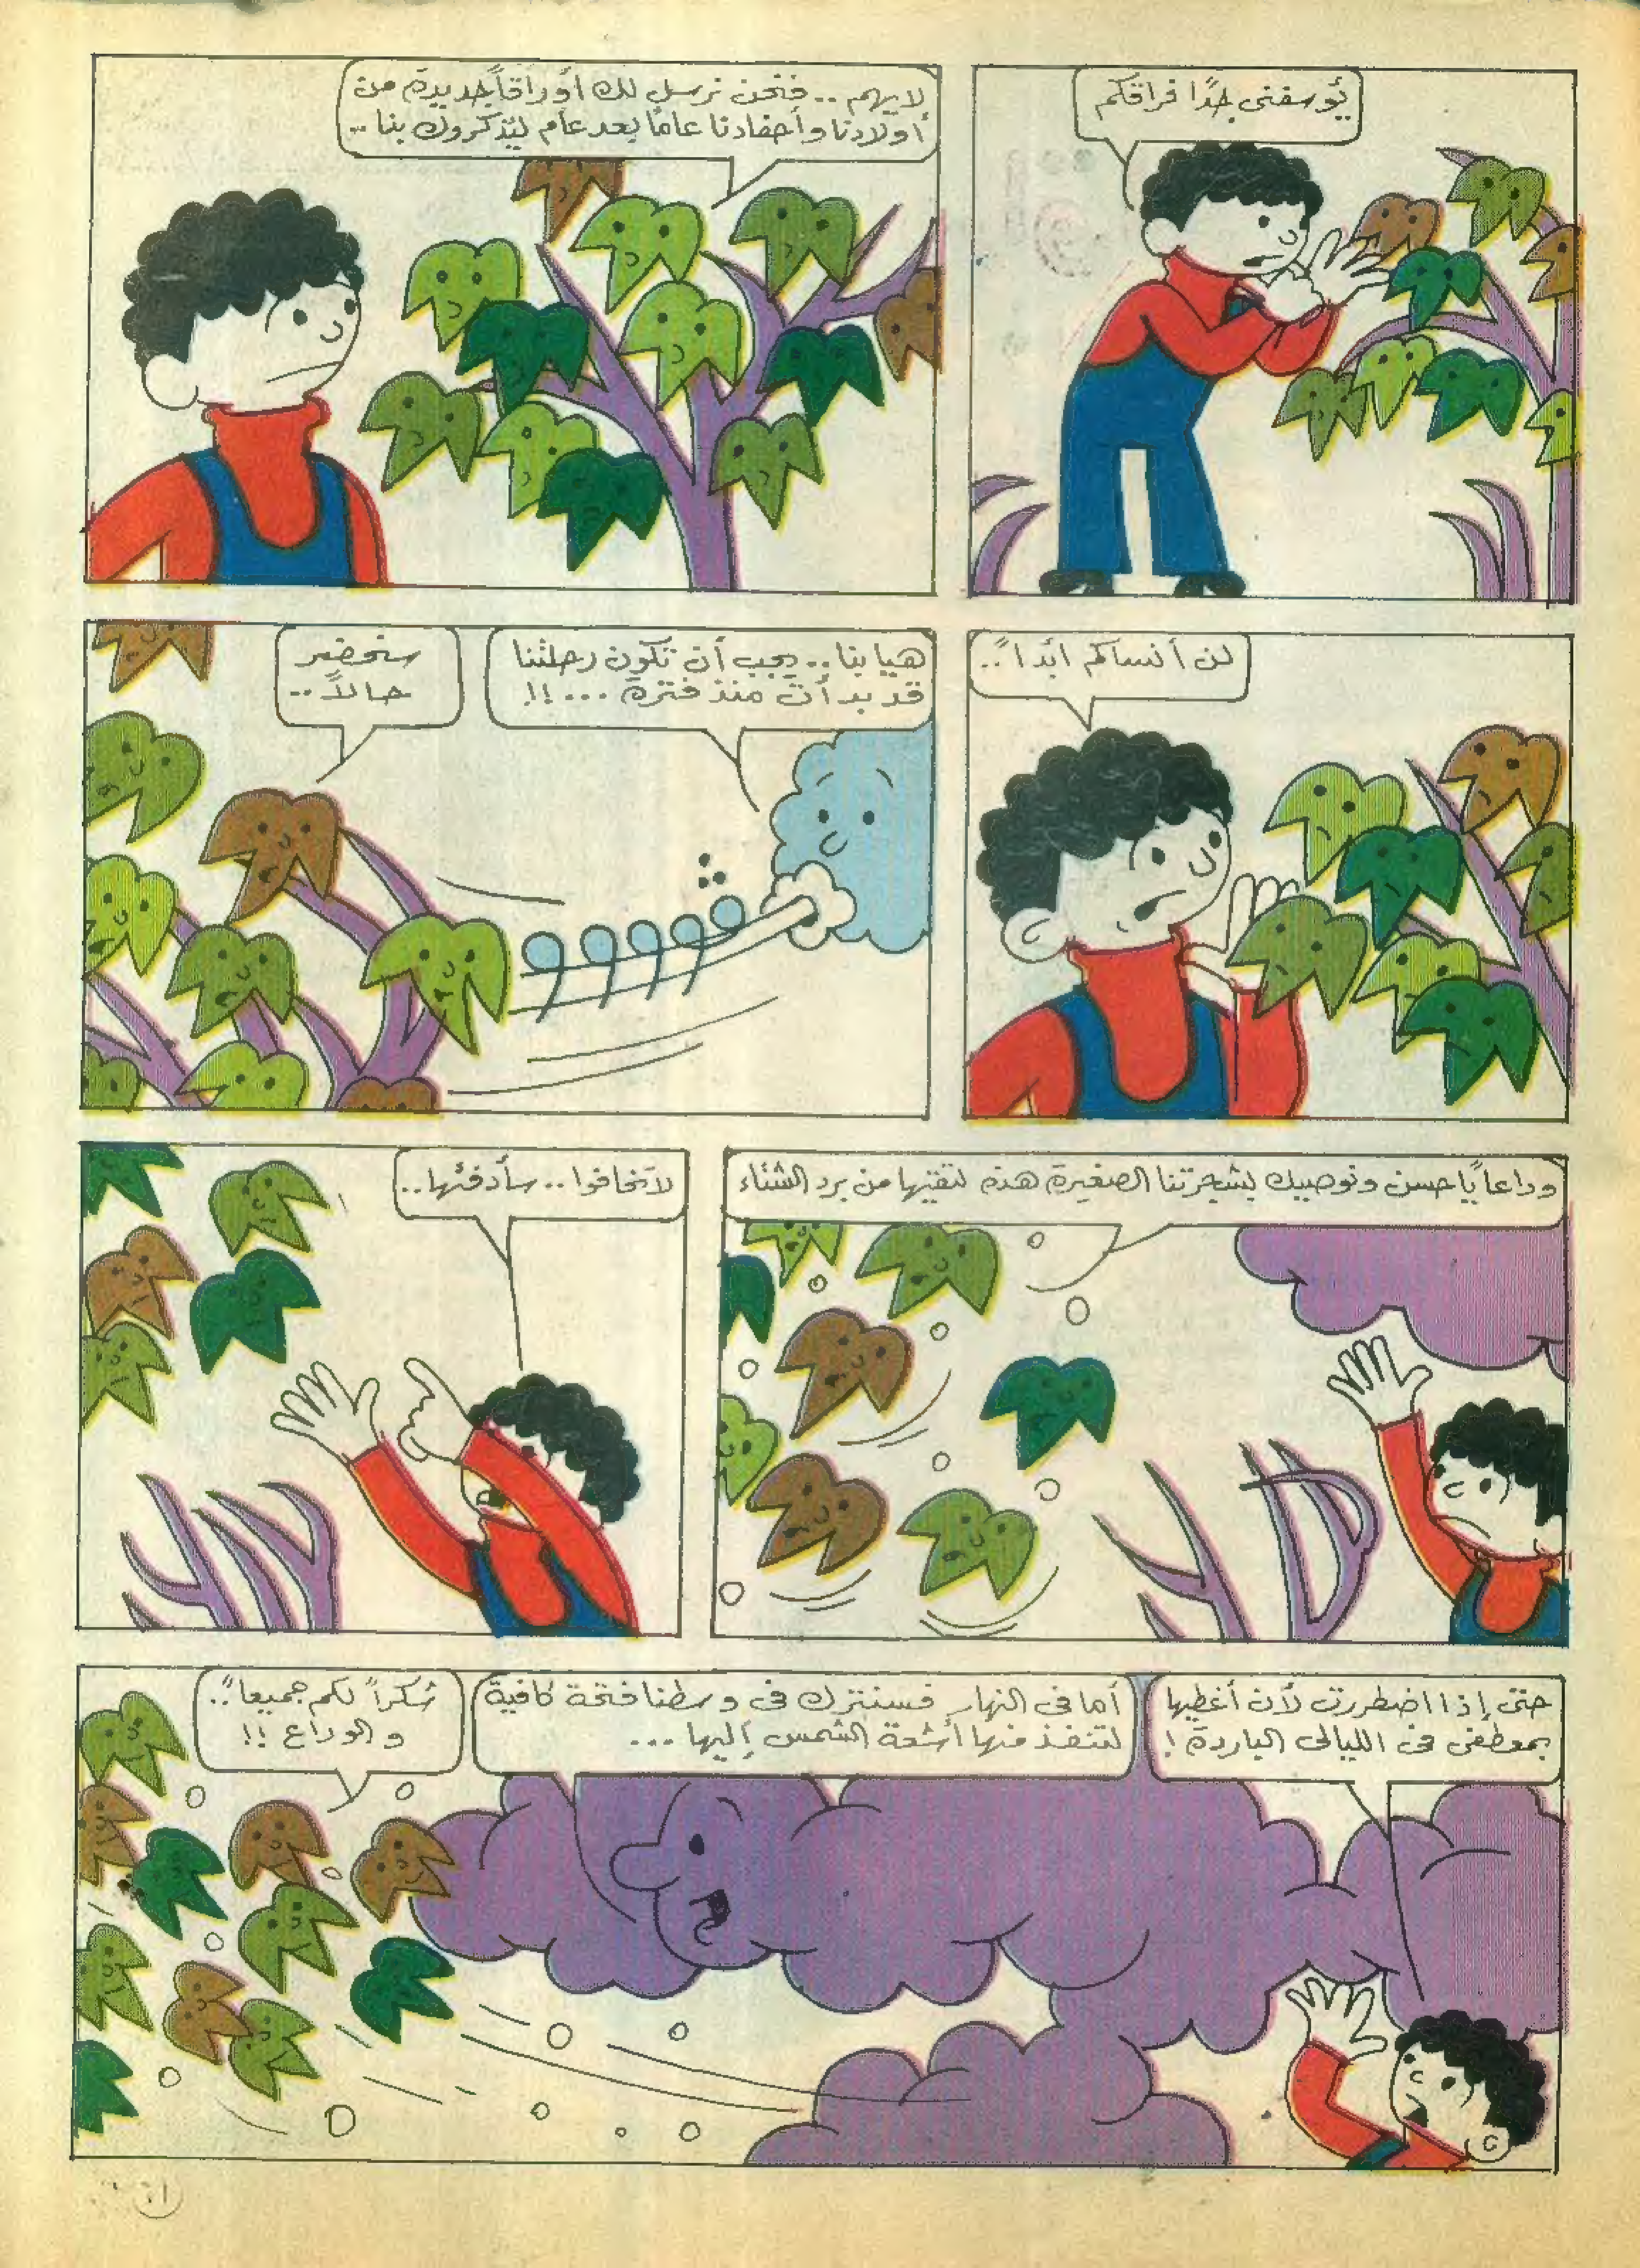 يؤسفنى جدًا فراقكم
لايهم .. فنحن نرسل لك أوراقاً جديدة من
أولادنا وأحفادنا عاماً بعد عام ليذكروك بنا ..
لن أنساكم أبداً ..
هيا بنا .. يجب أن تكون رحلتنا
قد بدأت منذ فترة ... !!
سنحضر
حالاً ..
وداعاً يا حسن ونوصيك بشجرتنا الصغيرة هذه لتقيها من برد الشتاء
لاتخافوا .. سأدفئها ..
حتى إذا اضطررت لأن أغطيها
بمعطفى فى الليالى الباردة !
أما فى النهار فسنترك فى وسطنا فتحة كافية
لتنفذ منها أشعة الشمس إليها ...
شكراً لكم جميعاً ..
والوداع !!